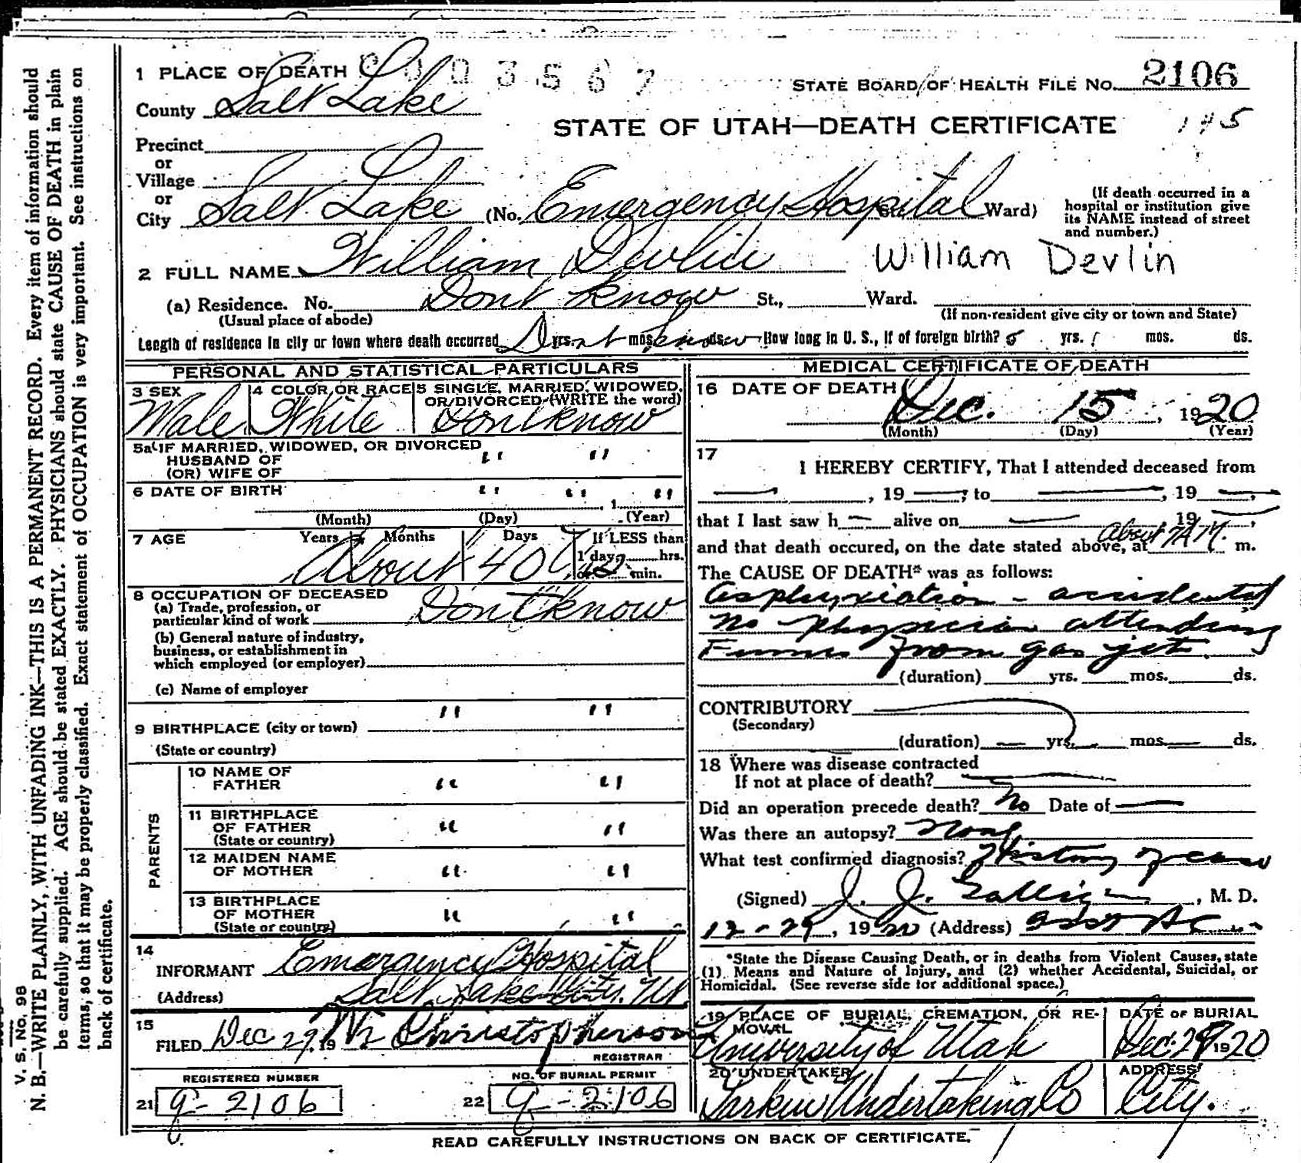 V. S. No. 98
N. B.—WRITE PLAINLY, WITH UNFADING INK—THIS IS A PERMANENT RECORD. Every item of information should
be carefully supplied. AGE should be stated EXACTLY. PHYSICIANS should state CAUSE OF DEATH in plain
terms, so that it may be properly classified. Exact statement of OCCUPATION is very important. See instructions on
back of certificate.
1 PLACE OF DEATH 003567
STATE BOARD OF HEALTH FILE No. 2106
County Salt Lake
STATE OF UTAH—DEATH CERTIFICATE 145
Precinct
or
Village
or
City Salt Lake (No. Emergency Hospital St. Ward)
(If death occurred in a
hospital or institution give
its NAME instead of street
and number.)
2 FULL NAME William Devlin William Devlin
(a) Residence. No. Dont know St., Ward.
(Usual place of abode) (If non-resident give city or town and State)
Length of residence in city or town where death occurred Dont know yrs. mos. ds. How long in U. S., if of foreign birth? yrs. mos. ds.
PERSONAL AND STATISTICAL PARTICULARS
3 SEX Male
4 COLOR OR RACE White
5 SINGLE, MARRIED, WIDOWED,
OR DIVORCED (WRITE the word)
Dont know
5a IF MARRIED, WIDOWED, OR DIVORCED
HUSBAND OF
(OR) WIFE OF " "
6 DATE OF BIRTH " " "
(Month) (Day) (Year)
7 AGE Years Months Days If LESS than
1 day hrs.
or min.
About 40
8 OCCUPATION OF DECEASED
(a) Trade, profession, or
particular kind of work Dont know
(b) General nature of industry,
business, or establishment in
which employed (or employer)
(c) Name of employer
9 BIRTHPLACE (city or town) " "
(State or country)
PARENTS
10 NAME OF
FATHER " "
11 BIRTHPLACE
OF FATHER " "
(State or country)
12 MAIDEN NAME
OF MOTHER " "
13 BIRTHPLACE
OF MOTHER " "
(State or country)
14
INFORMANT Emergency Hospital
(Address) Salt Lake City, Ut
15
FILED Dec 29 19 Christopherson
REGISTRAR
REGISTERED NUMBER
21 9-2106
NO. OF BURIAL PERMIT
22 9-2106
MEDICAL CERTIFICATE OF DEATH
16 DATE OF DEATH
Dec. 15, 1920
(Month) (Day) (Year)
17
I HEREBY CERTIFY, That I attended deceased from
—, 19—, to —, 19—,
that I last saw h— alive on —, 19—,
and that death occured, on the date stated above, at About 7 A.M. m.
The CAUSE OF DEATH* was as follows:
Asphyxiation - accidental
No physician attending
Fumes from gas jet.
(duration) yrs. mos. ds.
CONTRIBUTORY
(Secondary)
(duration) — yrs. — mos. — ds.
18 Where was disease contracted
If not at place of death?
Did an operation precede death? No Date of —
Was there an autopsy? None
What test confirmed diagnosis? History of case
(Signed) J. J. Galligan, M. D.
12-29, 1920 (Address)
*State the Disease Causing Death, or in deaths from Violent Causes, state
(1) Means and Nature of Injury, and (2) whether Accidental, Suicidal, or
Homicidal. (See reverse side for additional space.)
19 PLACE OF BURIAL, CREMATION, OR RE-
MOVAL
University of Utah
DATE OF BURIAL
Dec. 29 1920
20 UNDERTAKER
Larkin Undertaking Co
ADDRESS
City.
READ CAREFULLY INSTRUCTIONS ON BACK OF CERTIFICATE.